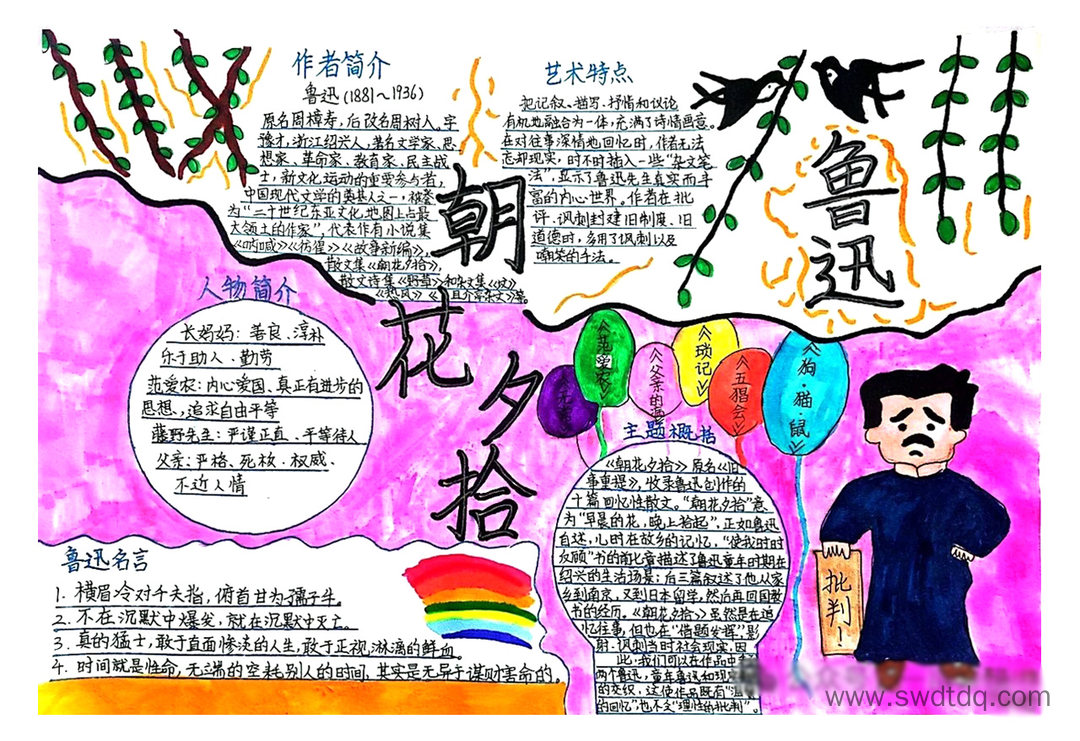 作者简介
鲁迅(1881～1936)
原名周樟寿，后改名周树人。字
豫才，浙江绍兴人，著名文学家、思
想家、革命家、教育家、民主战
士，新文化运动的重要参与者，
中国现代文学的奠基人之一，被誉
为“二十世纪东亚文化地图上占最
大领土的作家”。代表作有小说集
《呐喊》《彷徨》《故事新编》，
散文集《朝花夕拾》，
散文诗集《野草》和杂文集《坟》
《热风》《且介亭杂文》等。
艺术特点
把记叙、描写、抒情和议论
有机地融合为一体，充满了诗情画意。
在对往事深情地回忆时，作者无法
忘却现实，时不时插入一些“杂文笔
法”，显示了鲁迅先生真实而丰
富的内心世界。作者在批
评、讽刺封建旧制度、旧
道德时，多用了讽刺以及
嘲笑的手法。
鲁迅
朝花夕拾
人物简介
长妈妈：善良、淳朴
乐于助人、勤劳
范爱农：内心爱国、真正有进步的
思想，追求自由平等
藤野先生：严谨正直、平等待人
父亲：严格、死板、权威、
不近人情
《无常》
《范爱农》
《父亲的
《琐记》
《五猖会》
《狗·猫·鼠》
主题概括
《朝花夕拾》原名《旧
事重提》，收录鲁迅创作的
十篇回忆性散文。“朝花夕拾”意
为“早晨的花，晚上拾起”，正如鲁迅
自述，心时在故乡的记忆，“使我时时
反顾”书的前七章描述了鲁迅童年时期在
绍兴的生活场景；后三篇叙述了他从家
乡到南京，又到日本留学，然后再回国教
书的经历。《朝花夕拾》虽然是在追
忆往事，但也在“借题发挥”，影
射、讽刺当时社会现实，因
此，我们可以在作品中看
两个鲁迅，童年鲁迅和现实
的交织，这使作品既有“温
的回忆”，也不乏“理性的批判”。
批判！
鲁迅名言
1. 横眉冷对千夫指，俯首甘为孺子牛。
2. 不在沉默中爆发，就在沉默中灭亡。
3. 真的猛士，敢于直面惨淡的人生，敢于正视淋漓的鲜血。
4. 时间就是性命，无端的空耗别人的时间，其实是无异于谋财害命的。
www.swdtdq.com